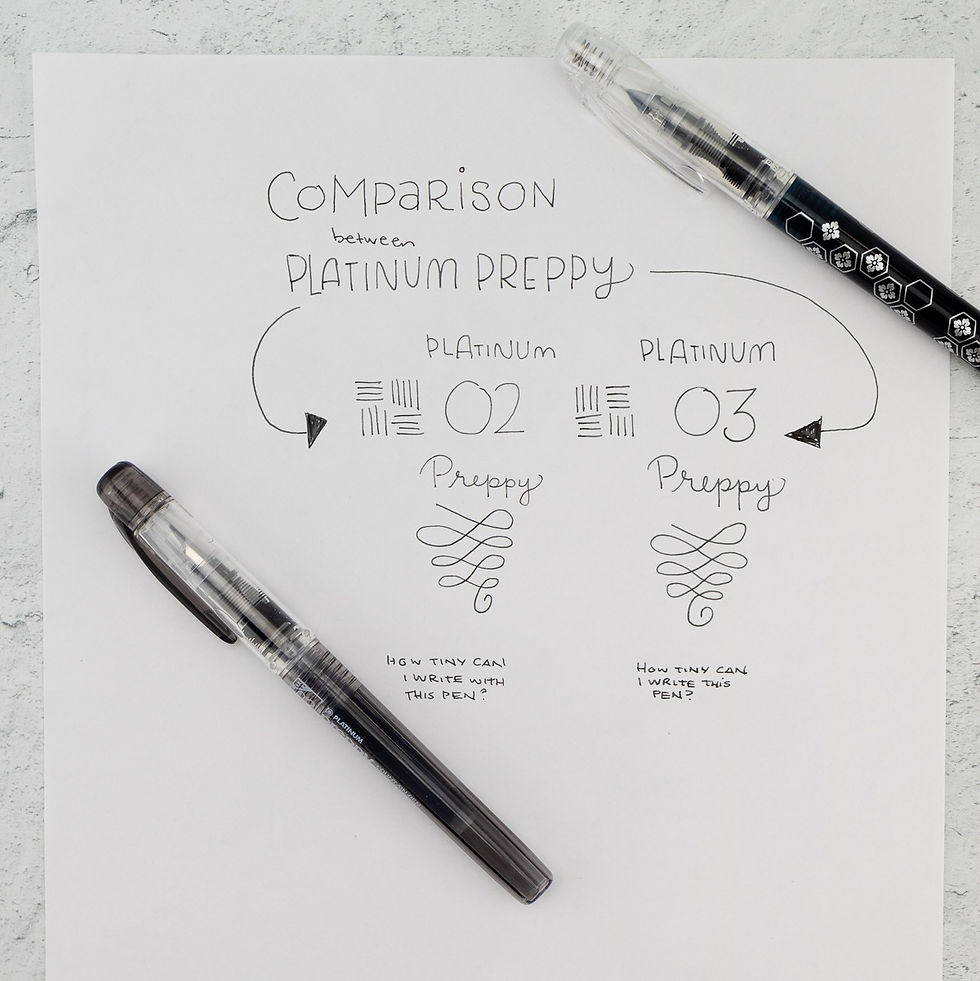 COMPARISON
between
PLATINUM PREPPY
PLATINUM
02
Preppy
HOW TINY CAN
I WRITE WITH
THIS PEN?
PLATINUM
03
Preppy
HOW TINY CAN
I WRITE THIS
PEN?
PLATINUM